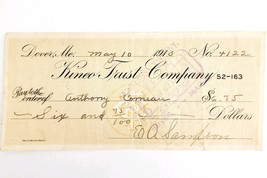 Dover, Me. May 10 1913 No. 4122
Kineo Trust Company 52-163
Pay to the order of Anthony Comeau $6.75
Six and 75/100 Dollars
E A Sampson